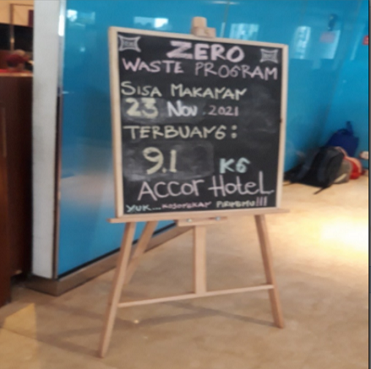 ZERO
WASTE PROGRAM
SISA MAKANAN
23 Nov. 2021
TERBUANG:
9.1 KG
ACCOR HOTEL
YUK...